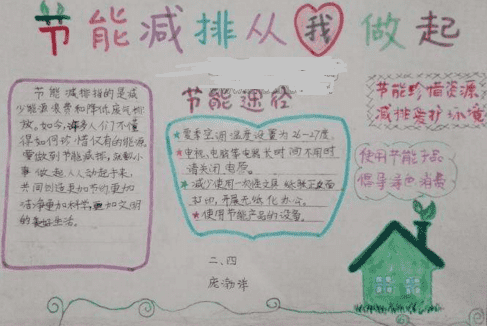 节能减排从我做起
节能减排指的是减
少能源浪费和降低废气排
放。如今,许多人们不懂
得如何珍惜仅有的能源
要做到节能减排,就要从小事
做起,人人动起手来,
共同创造更加节约,更加
洁净更加科学,更加文明
的美好生活。
节能途径
★夏季空调温度设置为26-27度。
★电视、电脑等电器长时间不用时
请关闭电源。
★减少使用一次性文具
打印,开展无纸化办公。
★使用节能产品的设备。
二、四
庞渤洋
节能珍惜资源
减排爱护环境
使用节能产品
倡导绿色消费